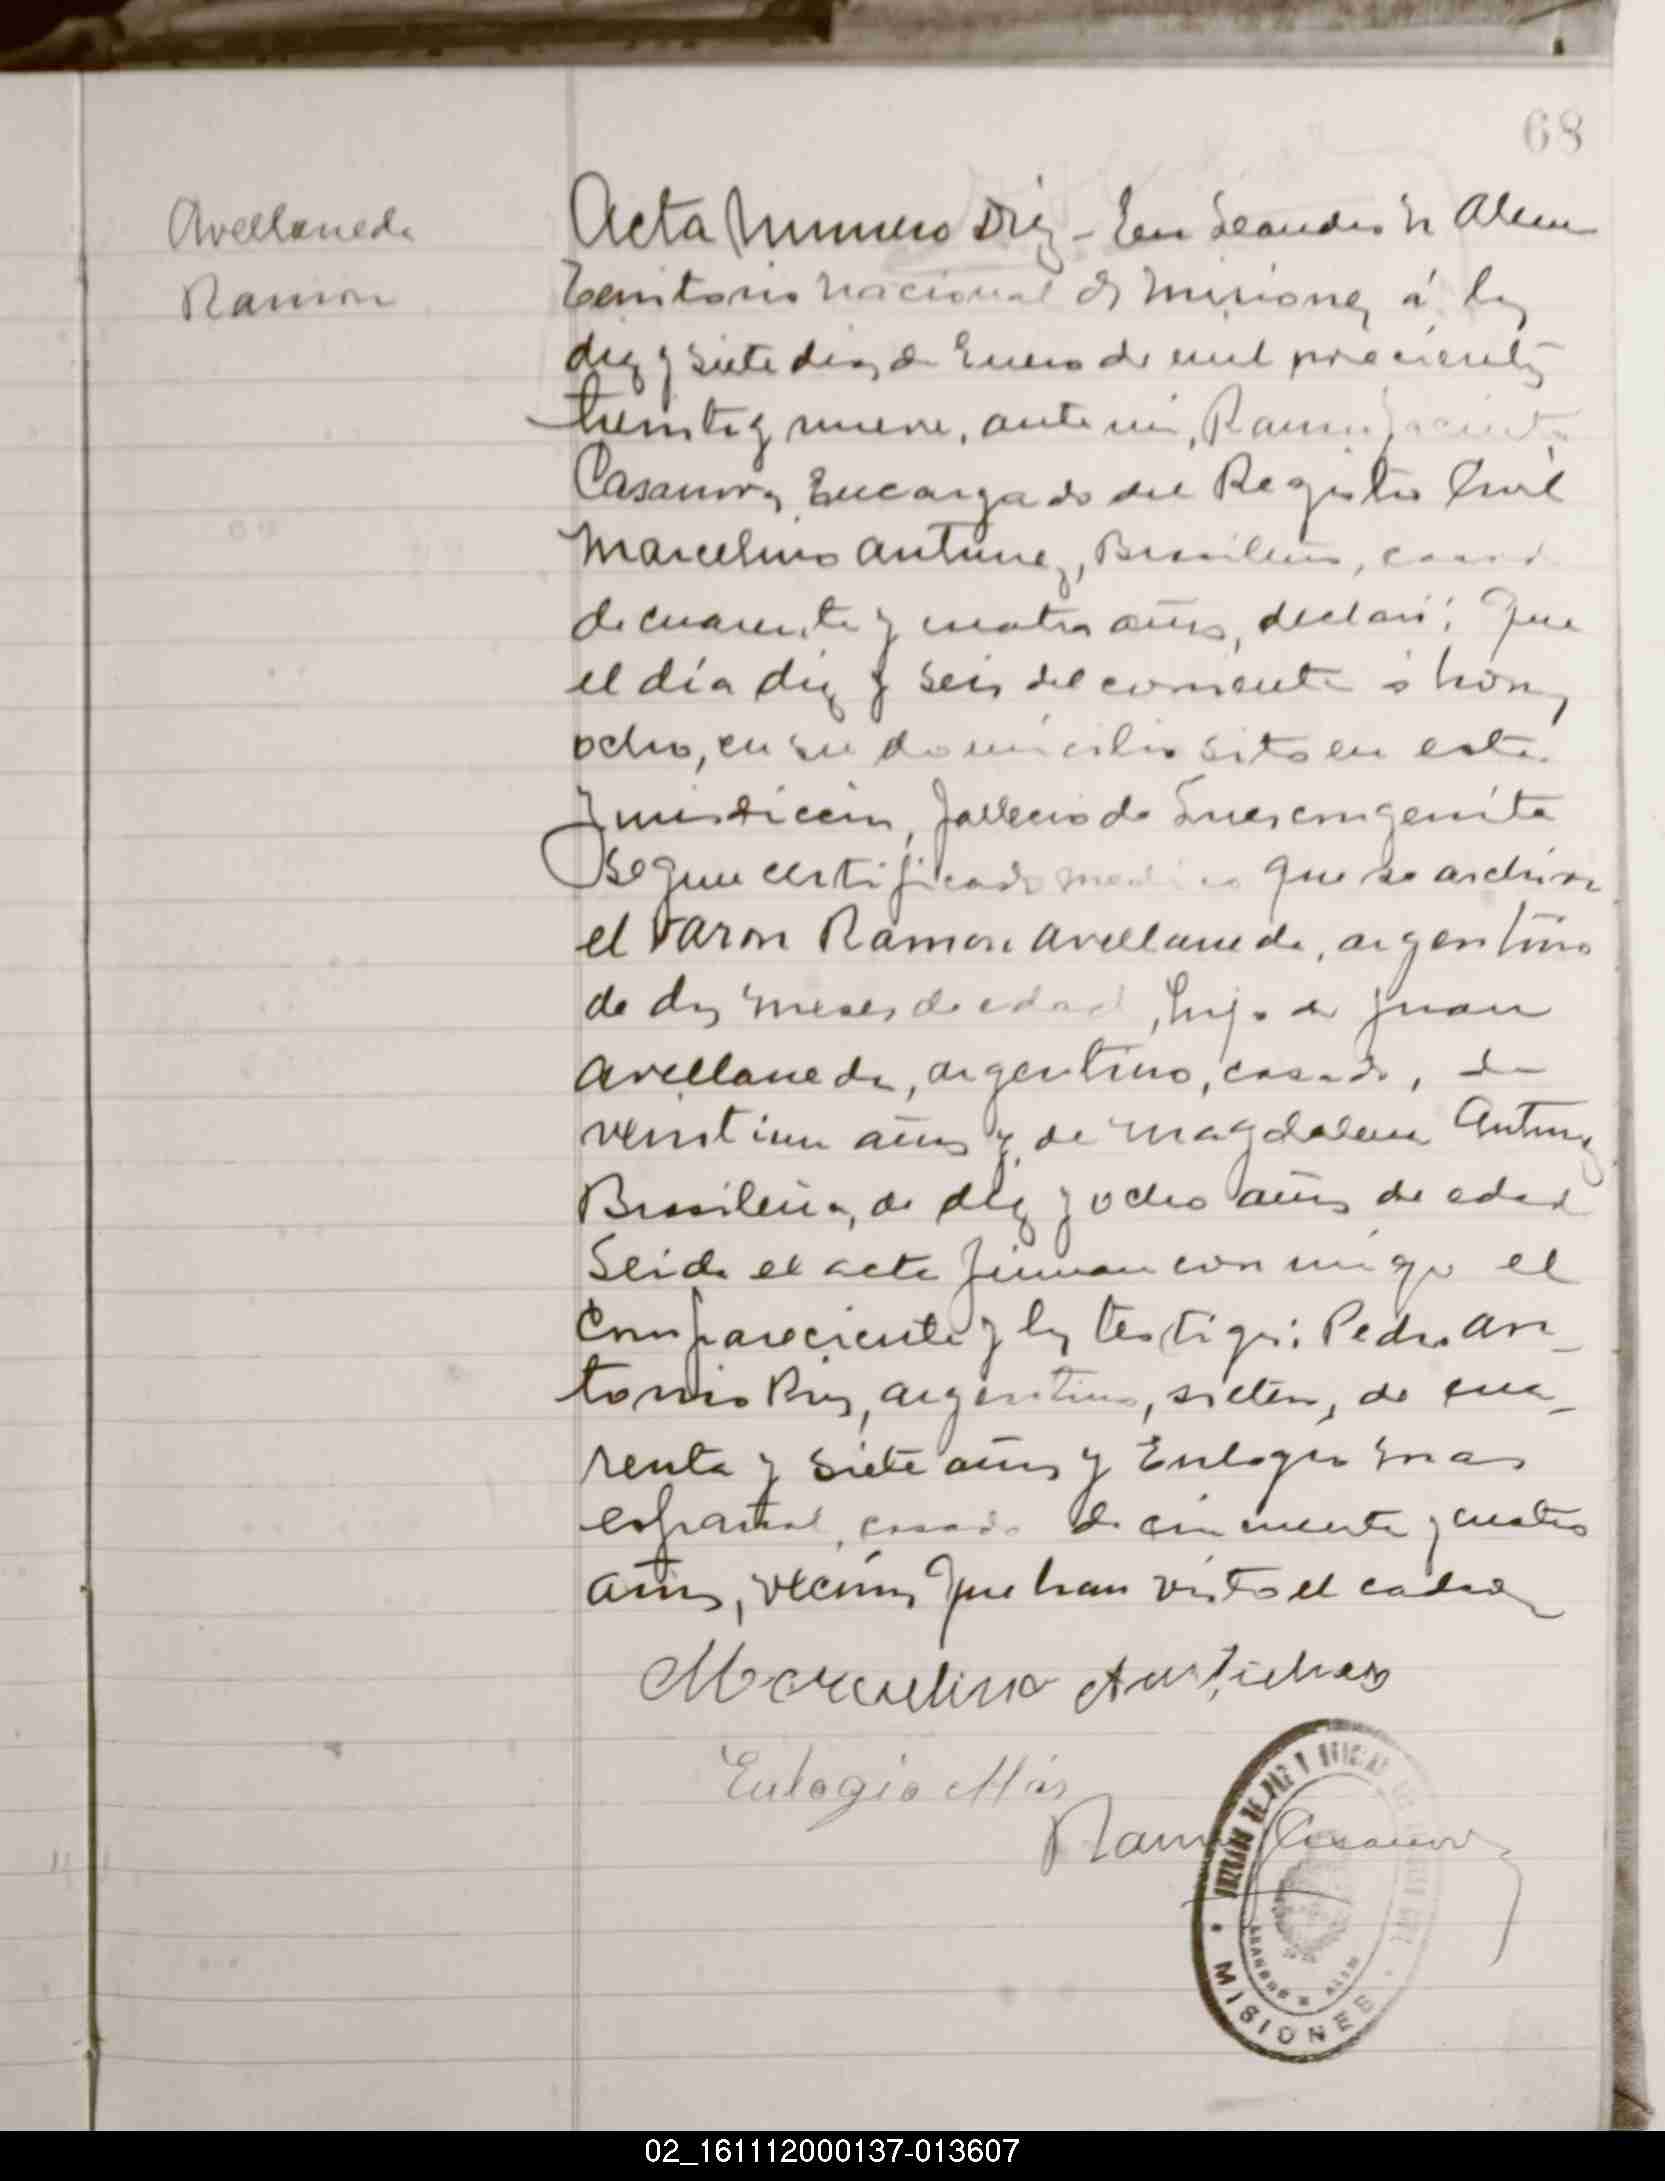 68
Avellaneda
Ramon
Acta Numero Diez - En Leandro N Alem
Territorio Nacional de Misiones, á los
diez y siete dias de Enero de mil novecientos
treinta y nueve, ante mi, Ramon Jacinto
Casanova, Encargado del Registro Civil
Marcelino Antunez, Brasileño, casado
de cuarenta y cuatro años, declaró: Que
el día diez y seis del corriente á horas
ocho, en su domicilio sito en esta
Jurisdiccion, fallecio de Lues congenita
segun certificado medico que se archiva
el varon Ramon Avellaneda, argentino
de dos meses de edad, hijo de Juan
Avellaneda, argentino, casado, de
veintiun años y de Magdalena Antunez
Brasileña, de diez y ocho años de edad
Leida el acta firman conmigo el
compareciente y los testigos: Pedro An-
tonio Ruiz, argentino, soltero, de cua-
renta y siete años y Eulogio Mas
español, casado de cincuenta y cuatro
años, vecinos que han visto el cadaver
Marcelino
Eulogio Más
Ramon J Casanova
JUZGADO DE PAZ Y OFICINA
LEANDRO N. ALEM
MISIONES
02_161112000137-013607